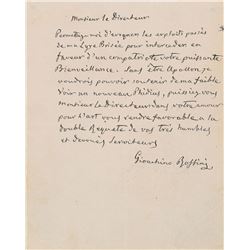 Monsieur le Directeur
Permettez moi d'arguer les exploits passés
de ma Lyre Brisée pour interceder en
faveur d'un compatriote votre puissante
Bienveillance. Sans être Apollon je
voudrois pouvoir soutenir de ma faible
Voix un nouveau Phidias, puissiez vous
Monsieur le Directeur dans votre amour
pour l'art vous rendre favorable a la
double Requete de vos très humbles
et devoués Serviteurs
Gioachino Rossini